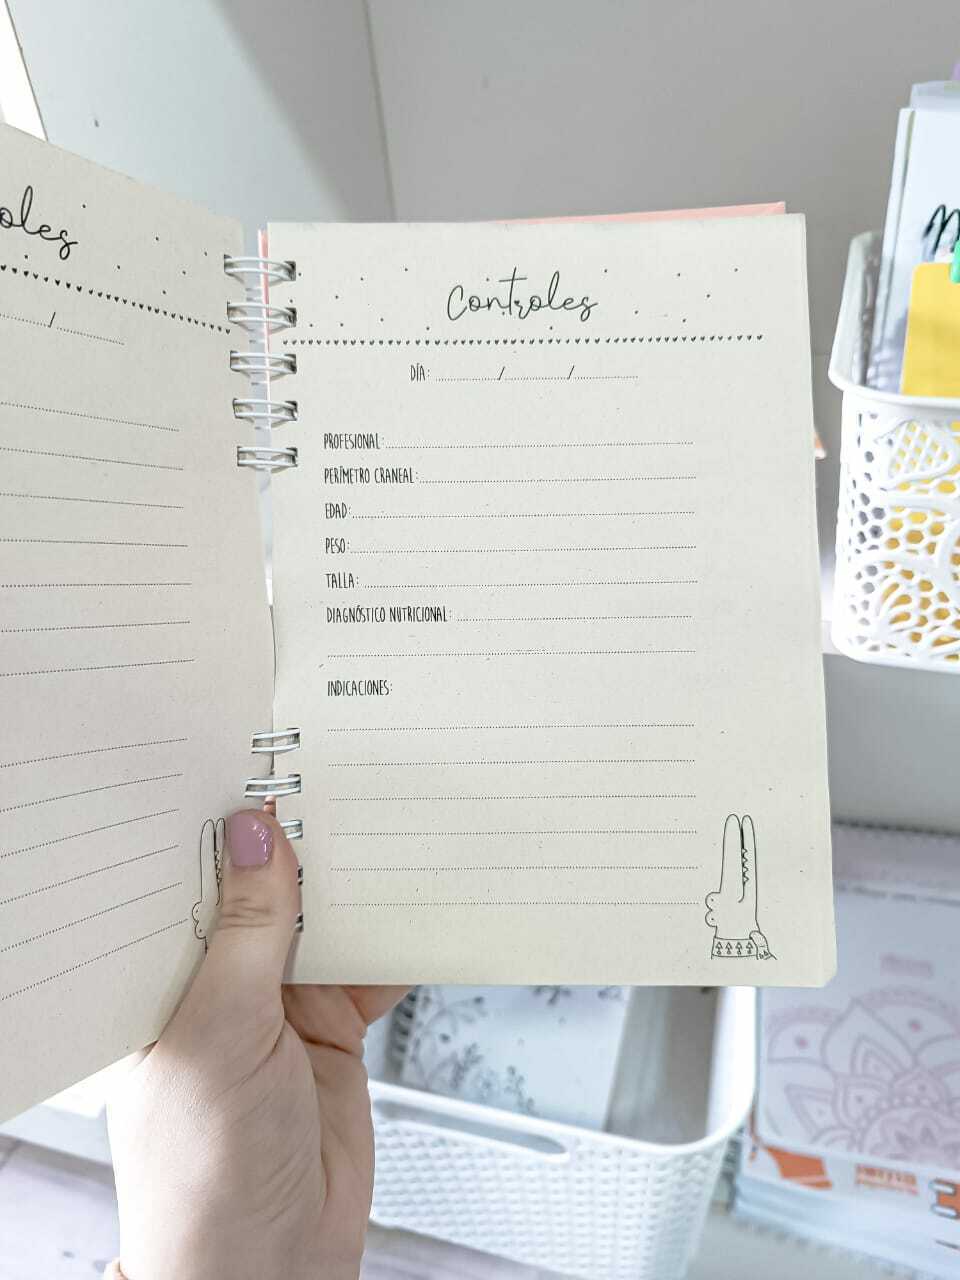 Controles
DÍA: ................/................/................
PROFESIONAL:
PERÍMETRO CRANEAL:
EDAD:
PESO:
TALLA:
DIAGNÓSTICO NUTRICIONAL:
INDICACIONES: